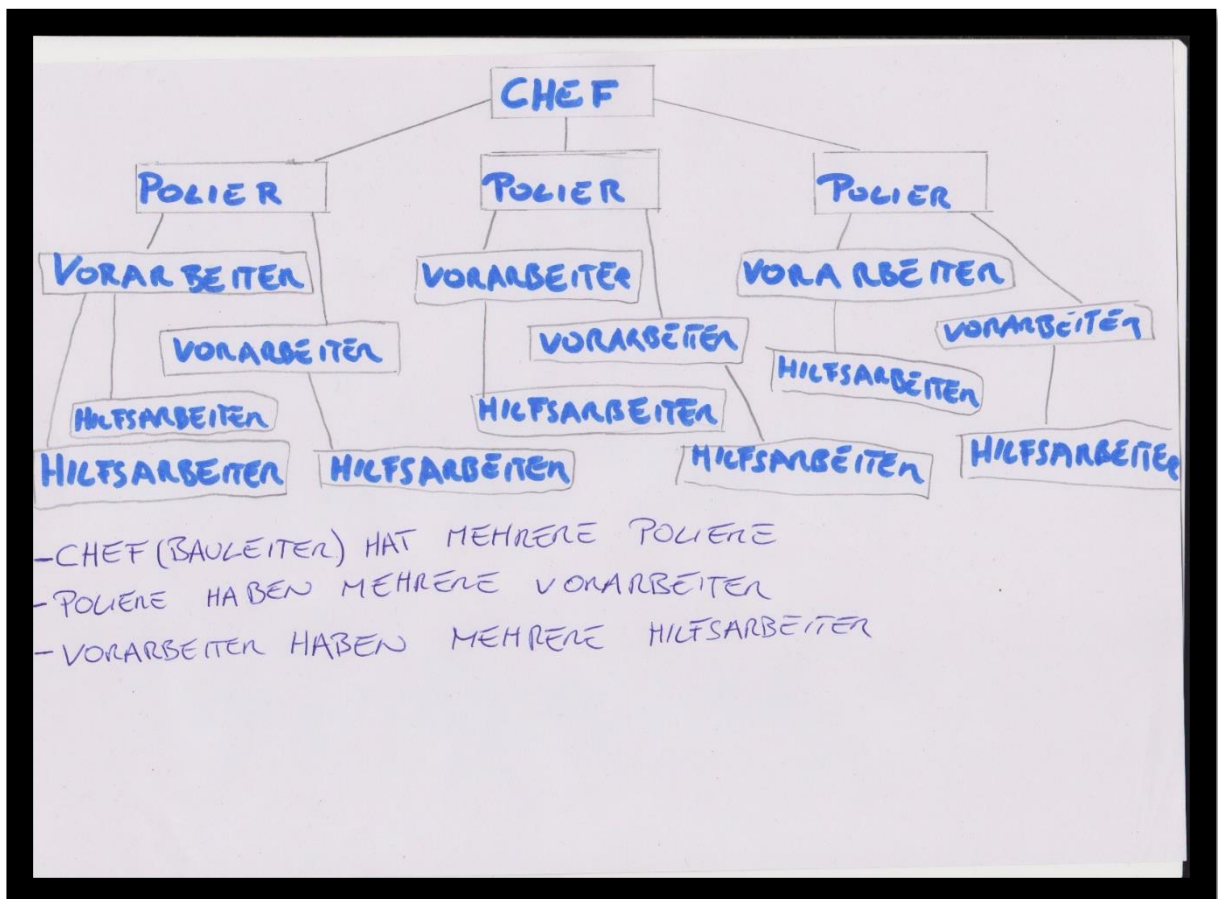 CHEF
POLIER POLIER POLIER
VORARBEITER VORARBEITER VORARBEITER
VORARBEITER VORARBEITER VORARBEITER
HILFSARBEITER HILFSARBEITER HILFSARBEITER
HILFSARBEITER HILFSARBEITER HILFSARBEITER HILFSARBEITER
-CHEF (BAULEITER) HAT MEHRERE POLIERE
-POLIERE HABEN MEHRERE VORARBEITER
-VORARBEITER HABEN MEHRERE HILFSARBEITER